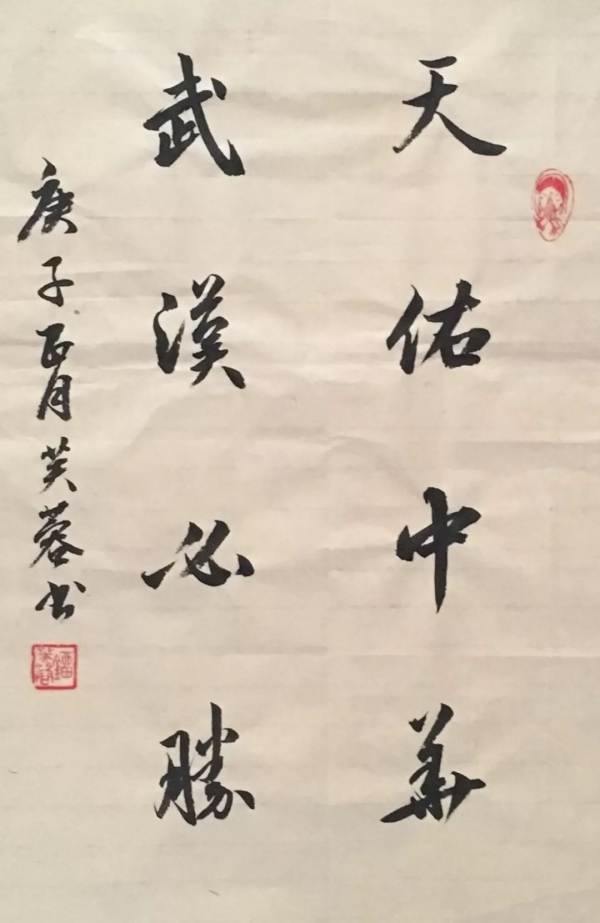 天佑中華
武漢必勝
庚子正月芙蓉书